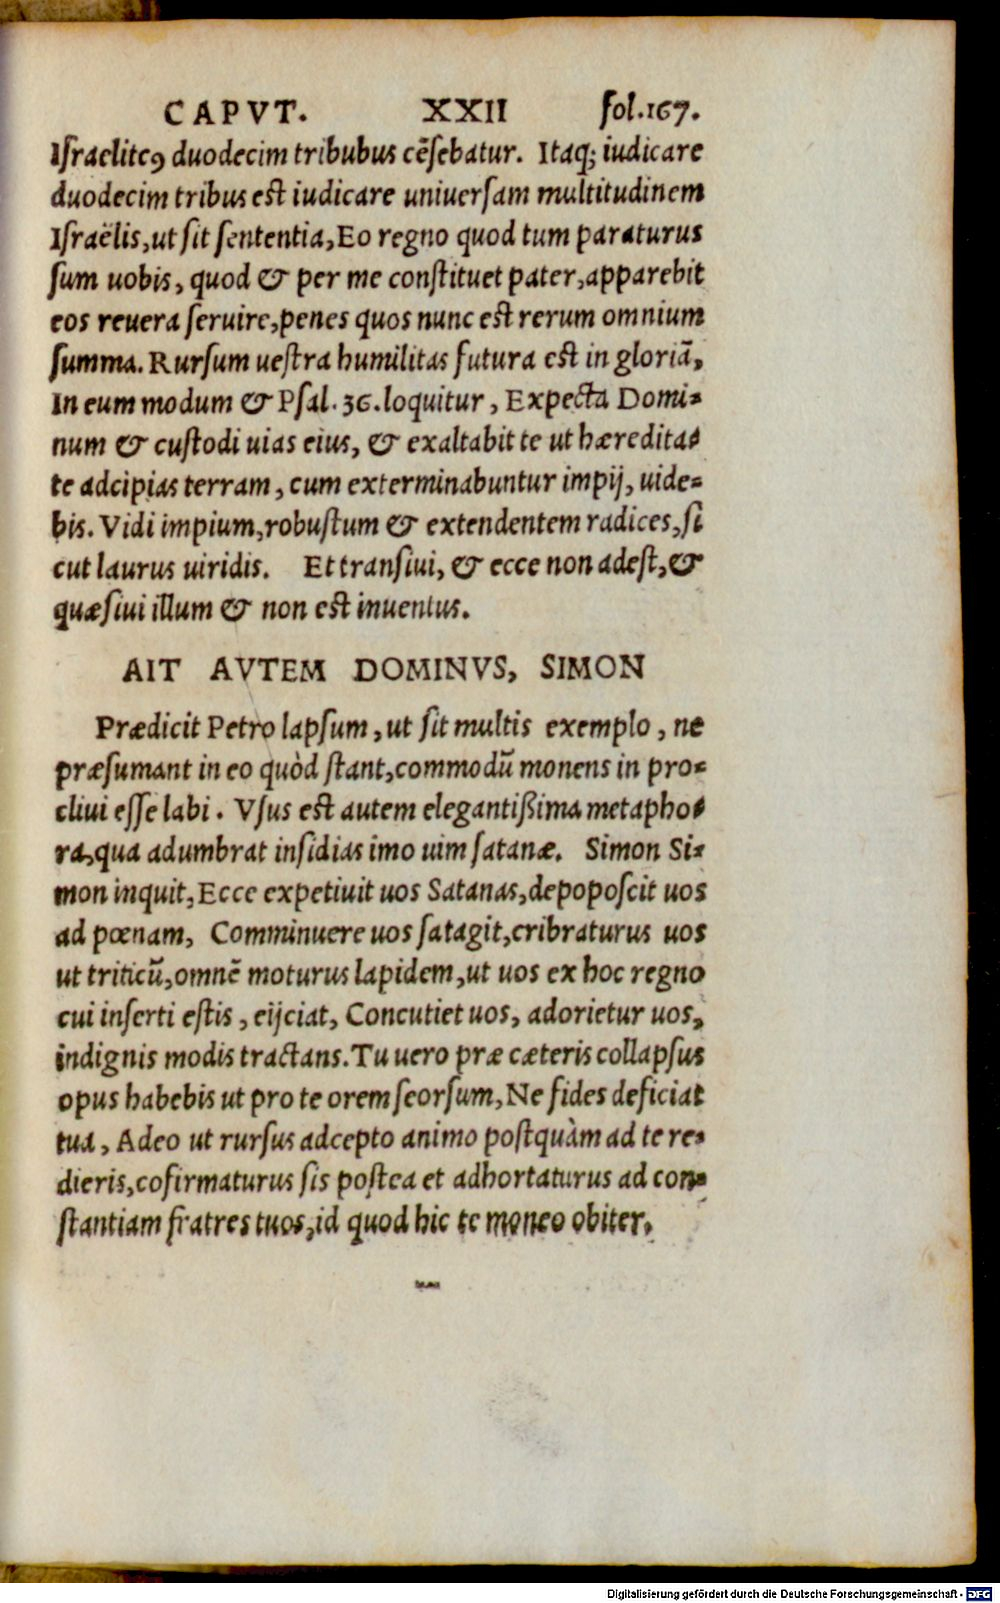 CAPVT. XXII fol.167.
Iſraelitcꝯ duodecim tribubus cẽſebatur. Itaq; iudicare
duodecim tribus eſt iudicare uniuerſam multitudinem
Iſraëlis, ut ſit ſententia, Eo regno quod tum paraturus
ſum uobis, quod & per me conſtituet pater, apparebit
eos reuera ſeruire, penes quos nunc eſt rerum omnium
ſumma. Rurſum ueſtra humilitas futura eſt in gloriã,
In eum modum & Pſal. 36. loquitur, Expecta Domi-
num & cuſtodi uias eius, & exaltabit te ut hæredita-
te adcipias terram, cum exterminabuntur impij, uide-
bis. Vidi impium, robuſtum & extendentem radices, ſi
cut laurus uiridis. Et tranſiui, & ecce non adeſt, &
quæſiui illum & non eſt inuentus.
AIT AVTEM DOMINVS, SIMON
Prædicit Petro lapſum, ut ſit multis exemplo, ne
præſumant in eo quòd ſtant, commodũ monens in pro-
cliui eſſe labi. Vſus eſt autem elegantißima metapho-
ra, qua adumbrat inſidias imo uim ſatanæ. Simon Si-
mon inquit, Ecce expetiuit uos Satanas, depopoſcit uos
ad pœnam, Comminuere uos ſatagit, cribraturus uos
ut triticũ, omnẽ moturus lapidem, ut uos ex hoc regno
cui inſerti eſtis, eijciat, Concutiet uos, adorietur uos,
indignis modis tractans. Tu uero præ cæteris collapſus
opus habebis ut pro te orem ſeorſum, Ne fides deficiat
tua, Adeo ut rurſus adcepto animo poſtquàm ad te re-
dieris, cofirmaturus ſis poſtea et adhortaturus ad con-
ſtantiam fratres tuos, id quod hic te moneo obiter.
Digitalisierung gefördert durch die Deutsche Forschungsgemeinschaft - DFG